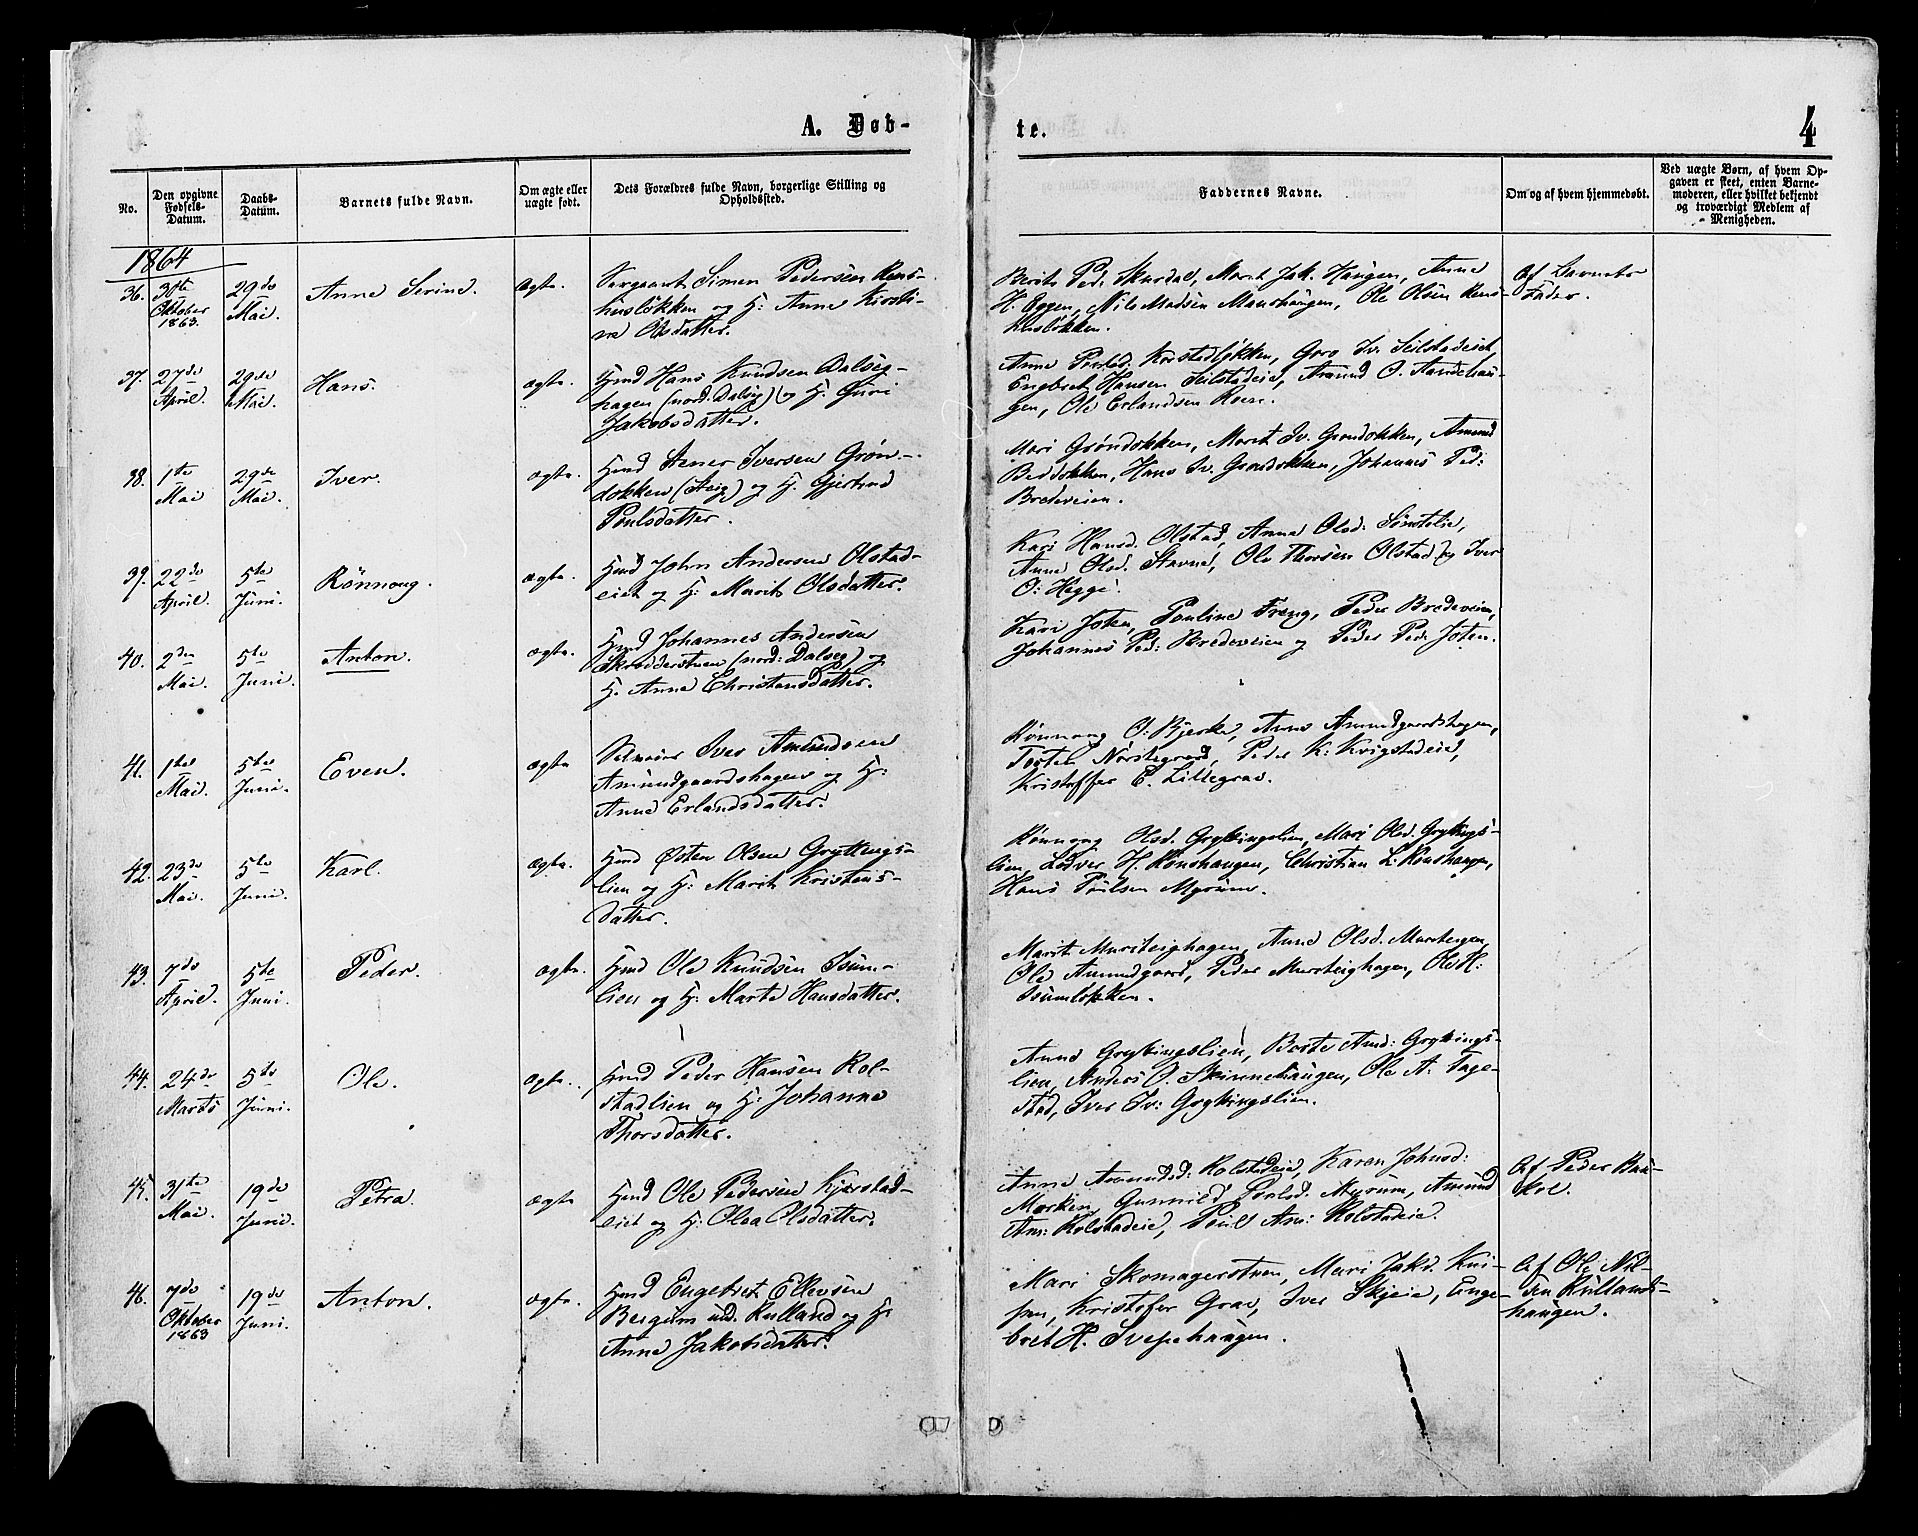 A. Døb-
te.
4
No.
Den opgivne Fødsels-Datum.
Daabs-Datum.
Barnets fulde Navn.
Om ægte eller uægte født.
Dets Forældres fulde Navn, borgerlige Stilling og Opholdssted.
Faddernes Navne.
Om og af hvem hjemmedøbt.
Ved uægte Børn, af hvem Opgaven er skeet, enten Barnemoderen, eller hvilket bekjendt og troværdigt Medlem af Menigheden.
1864
36. 30te Oktober 1863. 29de Mai Anne Serine. Ægte.
Simen Pedersen
husløkken og H: Anne Kirsti-
ne Olsdatter.
Berit Ped. Skurdal, Marit Jak. Haugen, Anne
H. Eggen, Nils Madsen Maushaugen, Ole Olsen
husløkken.
Af Barnets
Fader.
37. 27de April. 29de Mai. Hans. ægte.
Hmd Hans Knudsen Dalseg-
hagen (nord: Dalseg) og H. Guri
Jakobsdatter.
Anne Korstadløkken, Goro Iv. Seilstadeiet
Engbret Hansen Seilstadeie, Amund O.
gen, Ole Erlandsen
38. 1te Mai 29de Mai. Iver. ægte.
Hmd Stener Iversen Grøn-
dokken (Steig) og H. Gjertrud
Poulsdatter.
Mari Grøndokken, Marit Iv. Grøndokken, Amund
Hans Iv. Grøndokken, Johannes Ped:
Bredeveien.
39. 22de April. 5te Juni. Rønnoug. ægte.
Hmd John Andersen Olstad-
eiet og H: Marit Olsdatter.
Kari Hansd. Olstad, Anne Olsd. Sønstelie,
Anne Olsd. Stavne, Ole Thorsen Olstad og Iver
O: Hegge.
40. 2den Mai. 5te Juni. Anton. ægte.
Hmd Johannes Andersen
Skrædderstuen (nord: Dalseg) og
H. Anne Christensdatter.
Kari Joten, Pouline Freng, Peder Bredeveien,
Johannes Ped: Bredeveien og Peder Ped: Joten.
41. 1te Mai. 5te Juni. Even. ægte
Iver Amundsen
Amundgaardshagen og H:
Anne Erlandsdatter.
Rønnoug O: Bjerke, Anne Amundgaardshagen,
Torsten Nørstegrav, Peder K: Kvigstadeie,
Kristoffer E. Lillegrav.
42. 23de Mai. 5te Juni. Karl. ægte.
Hmd Østen Olsen GrytingS-
lien og H: Marit Kristens-
datter.
Rønnoug Olsd. Grytingslien, Mari Olsd. Grytings-
lien, Lodver H. Konshaugen, Christian L: Konshaugen,
Hans Poulsen Myrum.
43. 7de April. 5te Juni. Peder. ægte.
Hmd Ole Knudsen Isum-
lien og H: Marte Hansdatter.
Marit Mursteighagen, Anne Olsd. Mursteigen,
Ole Amundgaard, Peder Mursteighagen, Ole H:
Isumløkken.
44. 24de Marts 5te Juni. Ole. ægte.
Hmd Peder Hansen Kol-
stadlien og H: Johanne
Thorsdatter.
Anne Grytingslien, Berte Amd: Grytings-
lien, Anders O. Skinnehaugen, Ole A: Tage-
stad, Iver Iv: Grytingslien.
45. 31te Mai. 19de Juni. Petra. ægte
Hmd Ole Pedersen Kjørstad-
eiet og H: Olea Olsdatter.
Anne Amundsd: Kolstadeie, Karen Johnsd:
Morken, Gunnild Poulsd. Myrum, Amund
Am: Kolstadeie, Poul Am: Kolstadeie.
Af Peder Bau-
kol.
46. 7de Oktober 1863 19de Juni. Anton. ægte.
Hmd Engebret Ellevsen
Bergum und. Rulland og H:
Anne Jakobsdatter.
Mari Skomagerstuen, Mari Jakd. Kni-
pen, Kristofer Grav, Iver Skjeie, Enge-
bret H. Svepehaugen.
Af Ole Nil-
sen Rullands-
haugen.